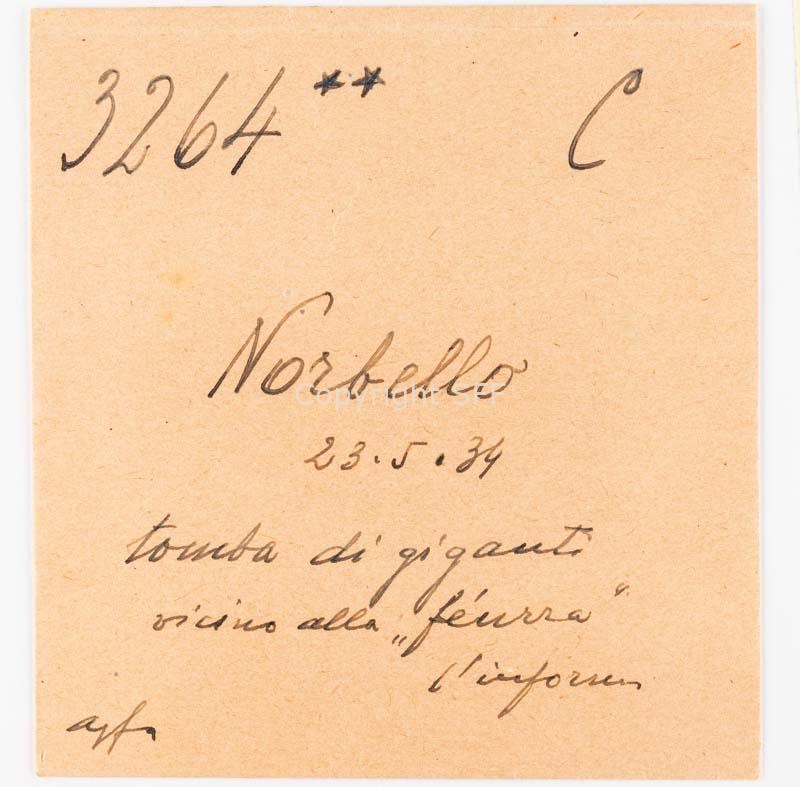 3264 ** C
Norbello
Copyright SFF
23.5.34
tomba di giganti
vicino alla „féurra"
l'inform
agfa